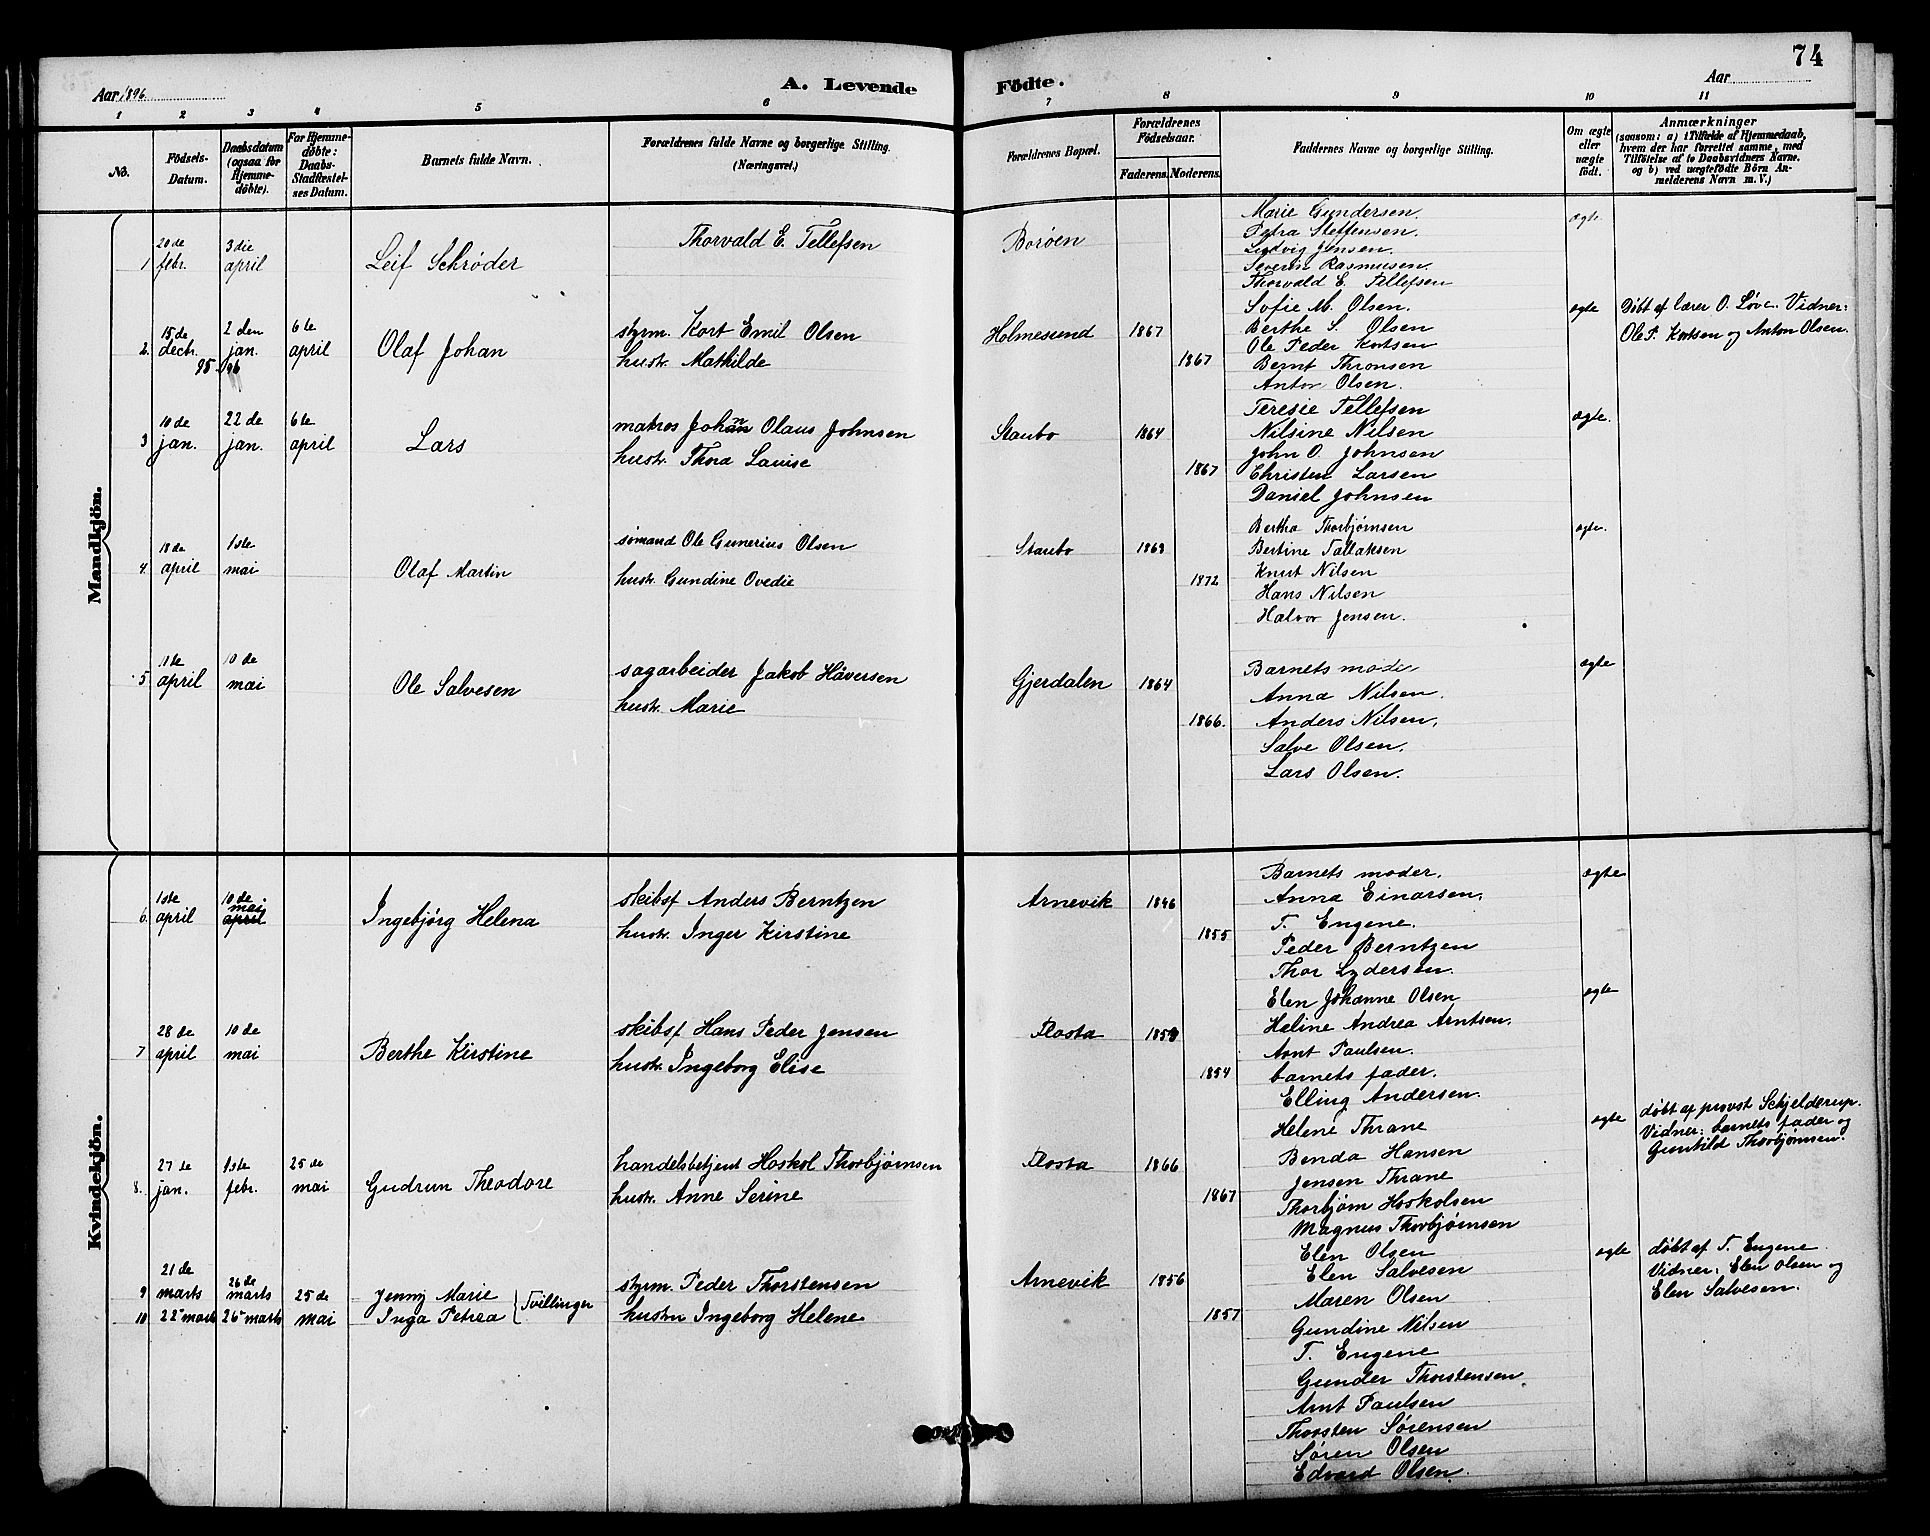 74
Aar 1896
A. Levende Födte.
Aar
1 2 3 4 5 6 7 8 9 10 11
No.
Födsels-Datum.
Daabsdatum (ogsaa for Hjemme-döbte).
For Hjemme-döbte: Daabs-Stadfæstel-ses Datum.
Barnets fulde Navn.
Forældrenes fulde Navne og borgerlige Stilling. (Næringsvei.)
Forældrenes Bopæl.
Forældrenes Födselsaar.
Faderens. Moderens.
Faddernes Navne og borgerlige Stilling.
Om ægte eller uægte födt.
Anmærkninger
(saasom: a) i Tilfælde af Hjemmedaab,
hvem der har forrettet samme, med
Tilföielse af to Daabsvidners Navne.
og b) ved uægtefödte Börn An-
melderens Navn m. V.)
Mandkjön.
1 20de febr. 3die april Leif Schrøder
Thorvald E. Tellefsen
Borøen
Marie Gundersen.
Petra Steffensen.
Ludvig Jensen.
Severin Rasmusen.
Thorvald E. Tellefsen
ægte
2. 15de decbr. 95. 2den jan. 96 6te april Olaf Johan
styrm. Kort Emil Olsen
hustr. Mathilde
Holmesund 1867 1867
Sofie M. Olsen.
Berthe S. Olsen
Ole Peder Kortsen
Bernt Thronsen
Anton Olsen.
ægte
Döbt af lærer O. Løve. Vidner:
Ole P. Kortsen og Anton Olsen.
3 10de jan. 22de jan. 6te april Lars
matros Johan Olaus Johnsen
hustr. Thora Lauise
Staubo 1864 1867
Teresie Tellefsen
Nilsine Nilsen
John O. Johnsen
Christen Larsen
Daniel Johnsen
ægte.
4. 18de april 1ste mai Olaf Martin
sømand Ole Gunerius Olsen
hustr. Gundine Ovedie
Staubo 1869 1872
Bertha Thorbjørnsen
Bertine Tallaksen
Knut Nilsen
Hans Nilsen
Halvor Jensen.
ægte.
5 1ste april 10de mai Ole Salvesen
sagarbeider Jakob Håversen
hustr. Marie
Gjerdalen 1864 1866.
Barnets mode
Anna Nilsen.
Anders Nilsen.
Salve Olsen.
Lars Olsen.
ægte
Kvindekjön.
6. 1ste april 10de mai april Ingebjørg Helena
skibsf Anders Berntzen
hustr. Inger Kirstine
Arnevik 1846 1855
Barnets moder.
Anna Einarsen.
T. Eugene.
Peder Berntzen
Thor Lydersen.
ægte
7 28de april 10de mai Berthe Kirstine
skibsf Hans Peder Jensen
hustr. Ingeborg Elise
Flosta 1854
Elen Johanne Olsen
Heline Andrea Arntsen.
Arnt Paulsen.
barnets fader.
Elling Andersen.
ægte
8. 27de jan. 1ste febr. 25de mai Gudrun Theodore
handelsbetjent Hoskol Thorbjørnsen
hustr. Anne Serine
Flosta 1866 1867
Helene Thrane
Benda Hansen
Jensen Thrane
Thorbjørn Hoskolsen
Magnus Thorbjørnsen
ægte
døbt af provst Schjelderup.
Vidner: barnets fader og
Gunhild Thorbjørnsen.
9 21de marts 26de marts 25de mai Jenny Marie
10 22 marts 26 marts Inga Petrea } Tvillinger
styrm. Peder Thorstensen
hustru Ingeborg Helene
Arnevik 1856 1857
Elen Olsen
Elen Salvesen
Maren Olsen
Gundine Nilsen
T. Eugene
Gunder Thorstensen.
Arnt Paulsen
Thorsten Sørensen
Søren Olsen
Edvard Olsen.
ægte
døbt af T. Eugene.
Vidner: Elen Olsen og
Elen Salvesen.